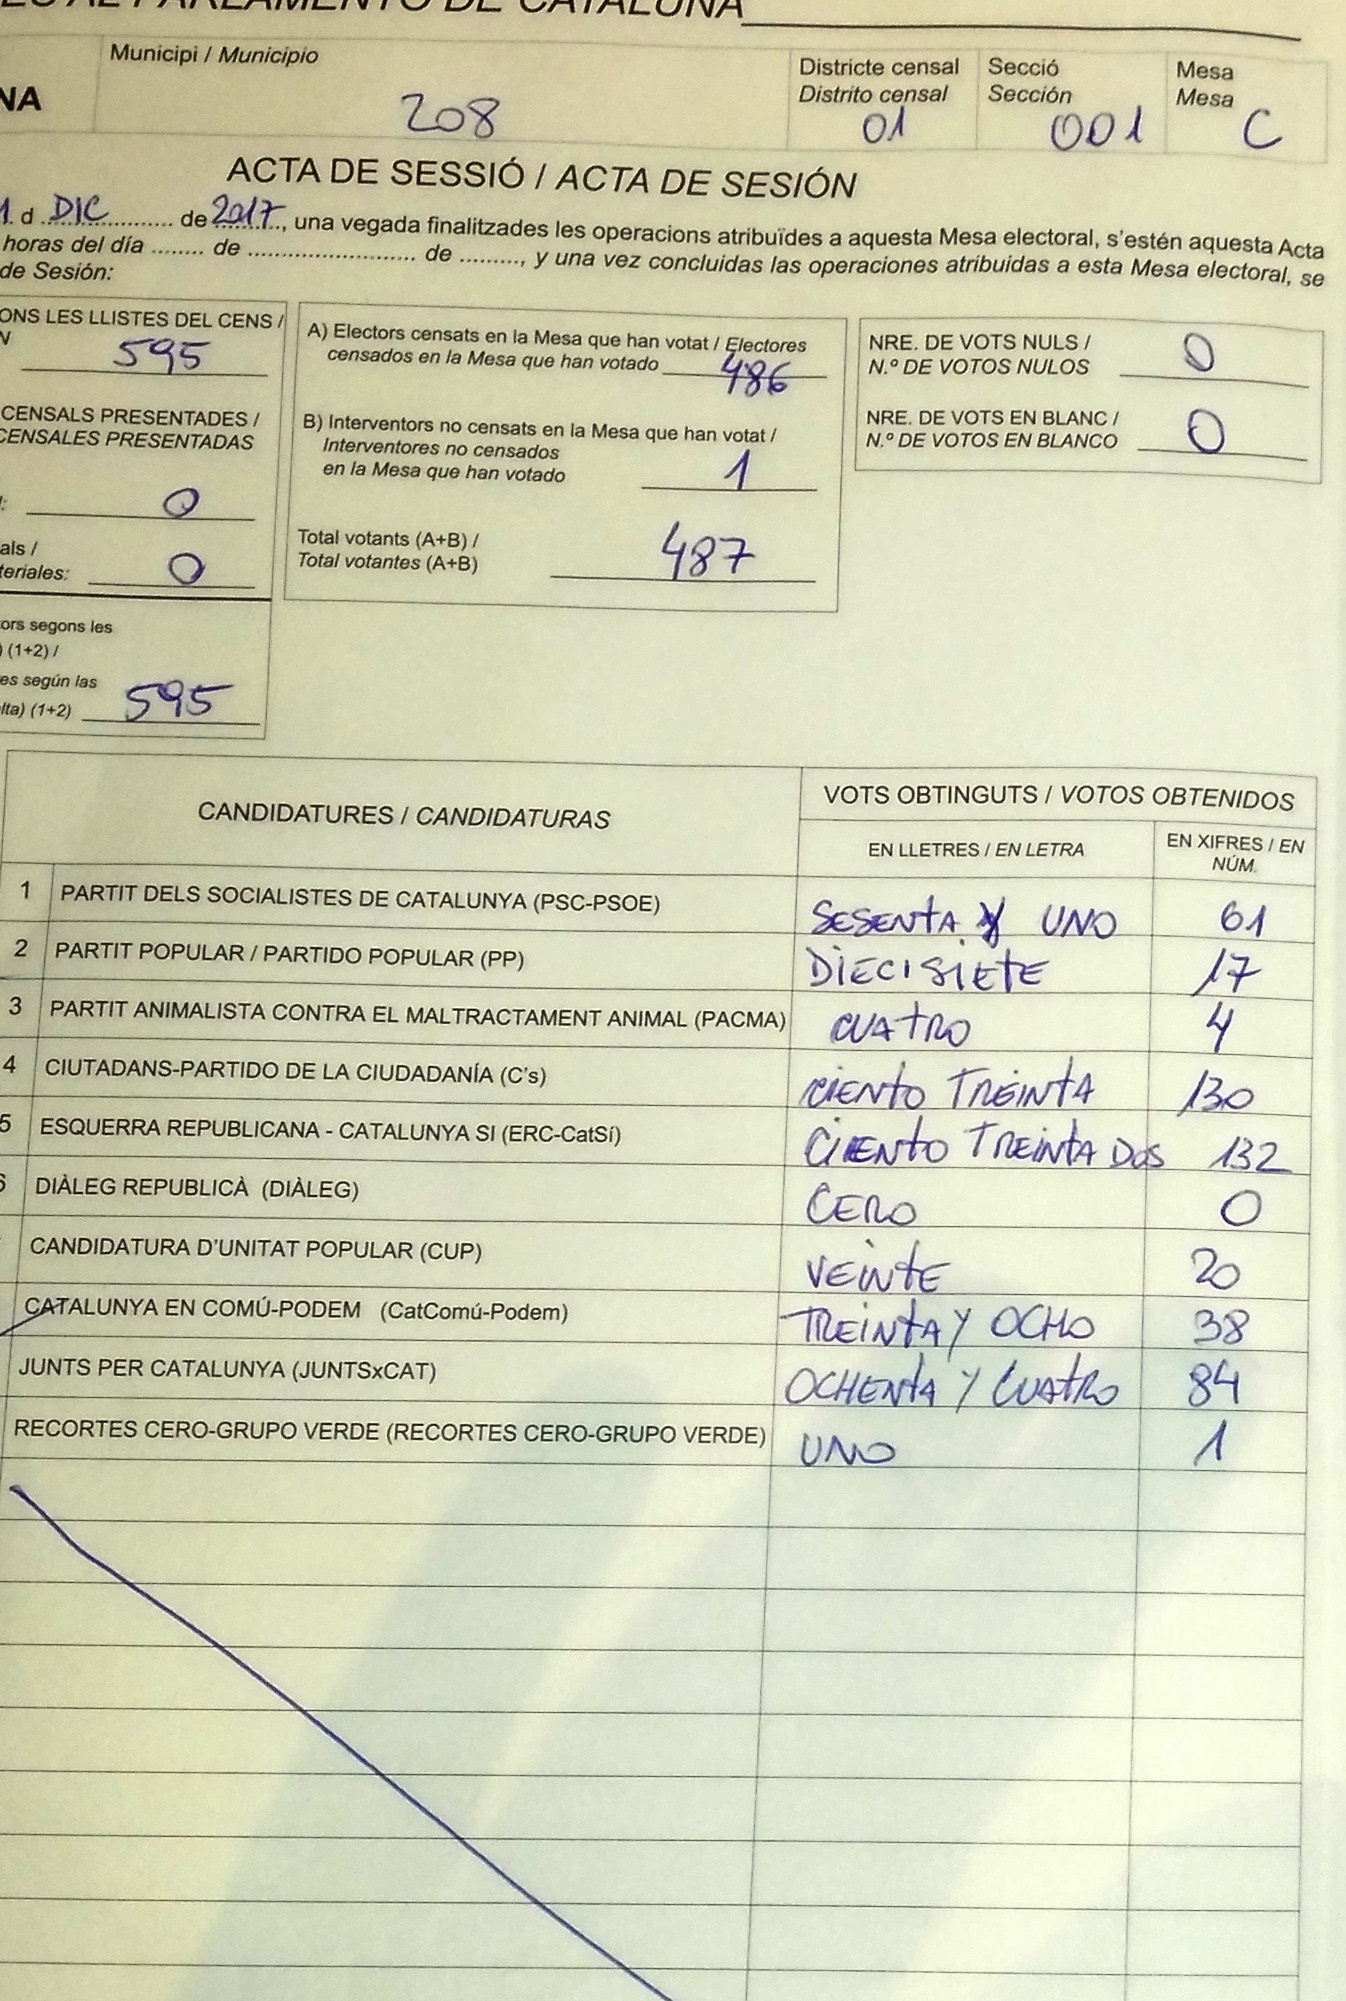 ES AL PARLAMENTO DE CATALUÑA
NA
Municipi / Municipio
208
Districte censal
Distrito censal
01
Secció
Sección
001
Mesa
Mesa
C
ACTA DE SESSIÓ / ACTA DE SESIÓN
1. d DIC de 2017, una vegada finalitzades les operacions atribuïdes a aquesta Mesa electoral, s'estén aquesta Acta
horas del día ........ de ........................ de ........., y una vez concluidas las operaciones atribuidas a esta Mesa electoral, se
de Sesión:
ONS LES LLISTES DEL CENS /
N
595
CENSALS PRESENTADES /
CENSALES PRESENTADAS
: 0
als /
teriales: 0
ors segons les
) (1+2) /
es según las
lta) (1+2) 595
A) Electors censats en la Mesa que han votat / Electores
censados en la Mesa que han votado 486
B) Interventors no censats en la Mesa que han votat /
Interventores no censados
en la Mesa que han votado 1
Total votants (A+B) /
Total votantes (A+B) 487
NRE. DE VOTS NULS /
N.º DE VOTOS NULOS 0
NRE. DE VOTS EN BLANC /
N.º DE VOTOS EN BLANCO 0
CANDIDATURES / CANDIDATURAS
VOTS OBTINGUTS / VOTOS OBTENIDOS
EN LLETRES / EN LETRA
EN XIFRES / EN
NÚM.
1 PARTIT DELS SOCIALISTES DE CATALUNYA (PSC-PSOE) SESENTA Y UNO 61
2 PARTIT POPULAR / PARTIDO POPULAR (PP) DIECISIETE 17
3 PARTIT ANIMALISTA CONTRA EL MALTRACTAMENT ANIMAL (PACMA) CUATRO 4
4 CIUTADANS-PARTIDO DE LA CIUDADANÍA (C's) CIENTO TREINTA 130
5 ESQUERRA REPUBLICANA - CATALUNYA SI (ERC-CatSí) CIENTO TREINTA DOS 132
6 DIÀLEG REPUBLICÀ (DIÀLEG) CERO 0
CANDIDATURA D'UNITAT POPULAR (CUP) VEINTE 20
CATALUNYA EN COMÚ-PODEM (CatComú-Podem) TREINTA Y OCHO 38
JUNTS PER CATALUNYA (JUNTSxCAT) OCHENTA Y CUATRO 84
RECORTES CERO-GRUPO VERDE (RECORTES CERO-GRUPO VERDE) UNO 1